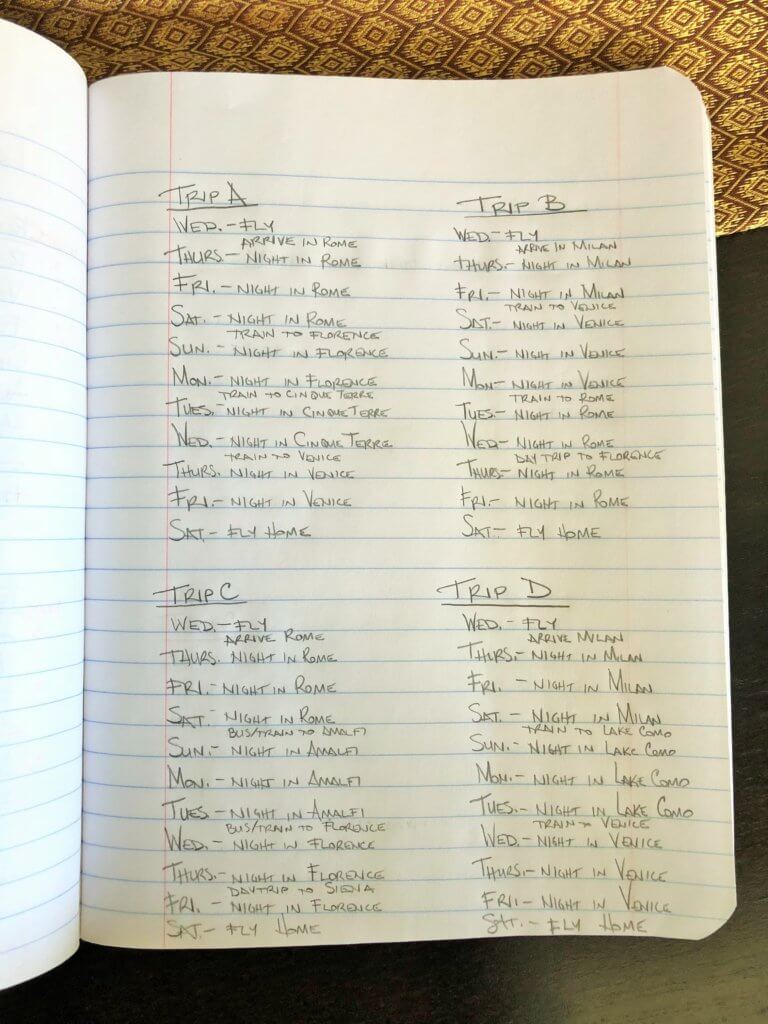 TRIP A
WED. - FLY
ARRIVE IN ROME
THURS - NIGHT IN ROME
FRI. - NIGHT IN ROME
SAT. - NIGHT IN ROME
TRAIN TO FLORENCE
SUN. - NIGHT IN FLORENCE
MON. - NIGHT IN FLORENCE
TRAIN TO CINQUE TERRE
TUES. - NIGHT IN CINQUE TERRE
WED. - NIGHT IN CINQUE TERRE
TRAIN TO VENICE
THURS. NIGHT IN VENICE
FRI - NIGHT IN VENICE
SAT. - FLY HOME
TRIP B
WED. - FLY
ARRIVE IN MILAN
THURS. - NIGHT IN MILAN
FRI - NIGHT IN MILAN
TRAIN TO VENICE
SAT. - NIGHT IN VENICE
SUN. - NIGHT IN VENICE
MON - NIGHT IN VENICE
TRAIN TO ROME
TUES. - NIGHT IN ROME
WED - NIGHT IN ROME
DAY TRIP TO FLORENCE
THURS - NIGHT IN ROME
FRI - NIGHT IN ROME
SAT - FLY HOME
TRIP C
WED. - FLY
ARRIVE ROME
THURS. NIGHT IN ROME
FRI. - NIGHT IN ROME
SAT. NIGHT IN ROME
BUS/TRAIN TO AMALFI
SUN. - NIGHT IN AMALFI
MON. - NIGHT IN AMALFI
TUES - NIGHT IN AMALFI
BUS/TRAIN TO FLORENCE
WED. - NIGHT IN FLORENCE
THURS. - NIGHT IN FLORENCE
DAY TRIP TO SIENA
FRI. - NIGHT IN FLORENCE
SAT. - FLY HOME
TRIP D
WED. - FLY
ARRIVE MILAN
THURS. - NIGHT IN MILAN
FRI. - NIGHT IN MILAN
SAT. - NIGHT IN MILAN
TRAIN TO LAKE COMO
SUN. - NIGHT IN LAKE COMO
MON. - NIGHT IN LAKE COMO
TUES. - NIGHT IN LAKE COMO
TRAIN TO VENICE
WED. - NIGHT IN VENICE
THURS. - NIGHT IN VENICE
FRI. - NIGHT IN VENICE
SAT. - FLY HOME